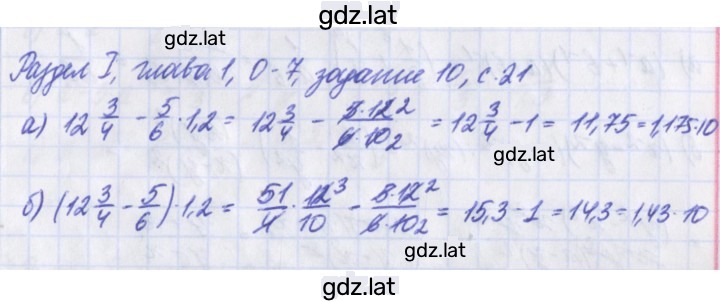 gdz.lat
gdz.lat
Раздел I, глава 1, О-7, задание 10, с. 21
а) 12 3/4 - 5/6 · 1,2 = 12 3/4 - 5·12 2 / 6·10 2 = 12 3/4 - 1 = 11,75 = 1,175·10
gdz.lat
б) (12 3/4 - 5/6) 1,2 = 51/4 · 12 3 / 10 - 5·12 2 / 6·10 2 = 15,3 - 1 = 14,3 = 1,43·10
gdz.lat
gdz.lat